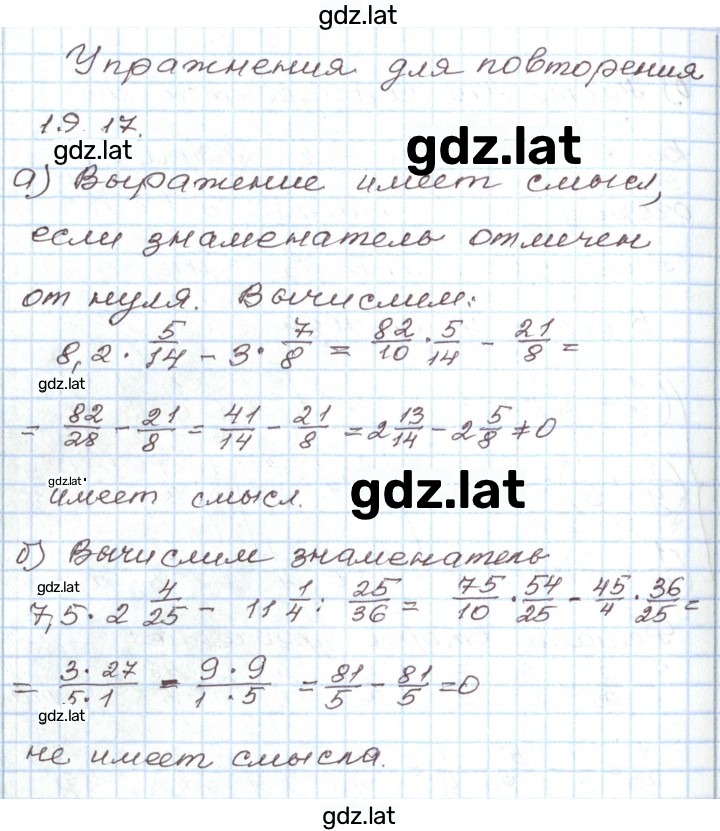 gdz.lat
Упражнения для повторения
1.9.17.
gdz.lat
gdz.lat
а) Выражение имеет смысл,
если знаменатель отличен
от нуля. Вычислим:
8,2 · 5/14 - 3 · 7/8 = 82/10 · 5/14 - 21/8 =
gdz.lat
= 82/28 - 21/8 = 41/14 - 21/8 = 2 13/14 - 2 5/8 ≠ 0
gdz.lat
имеет смысл.
gdz.lat
б) Вычислим знаменатель
gdz.lat
7,5 · 2 4/25 - 11 1/4 : 25/36 = 75/10 · 54/25 - 45/4 · 36/25 =
= 3 · 27/5 · 1 - 9 · 9/1 · 5 = 81/5 - 81/5 = 0
gdz.lat
не имеет смысла.
gdz.lat